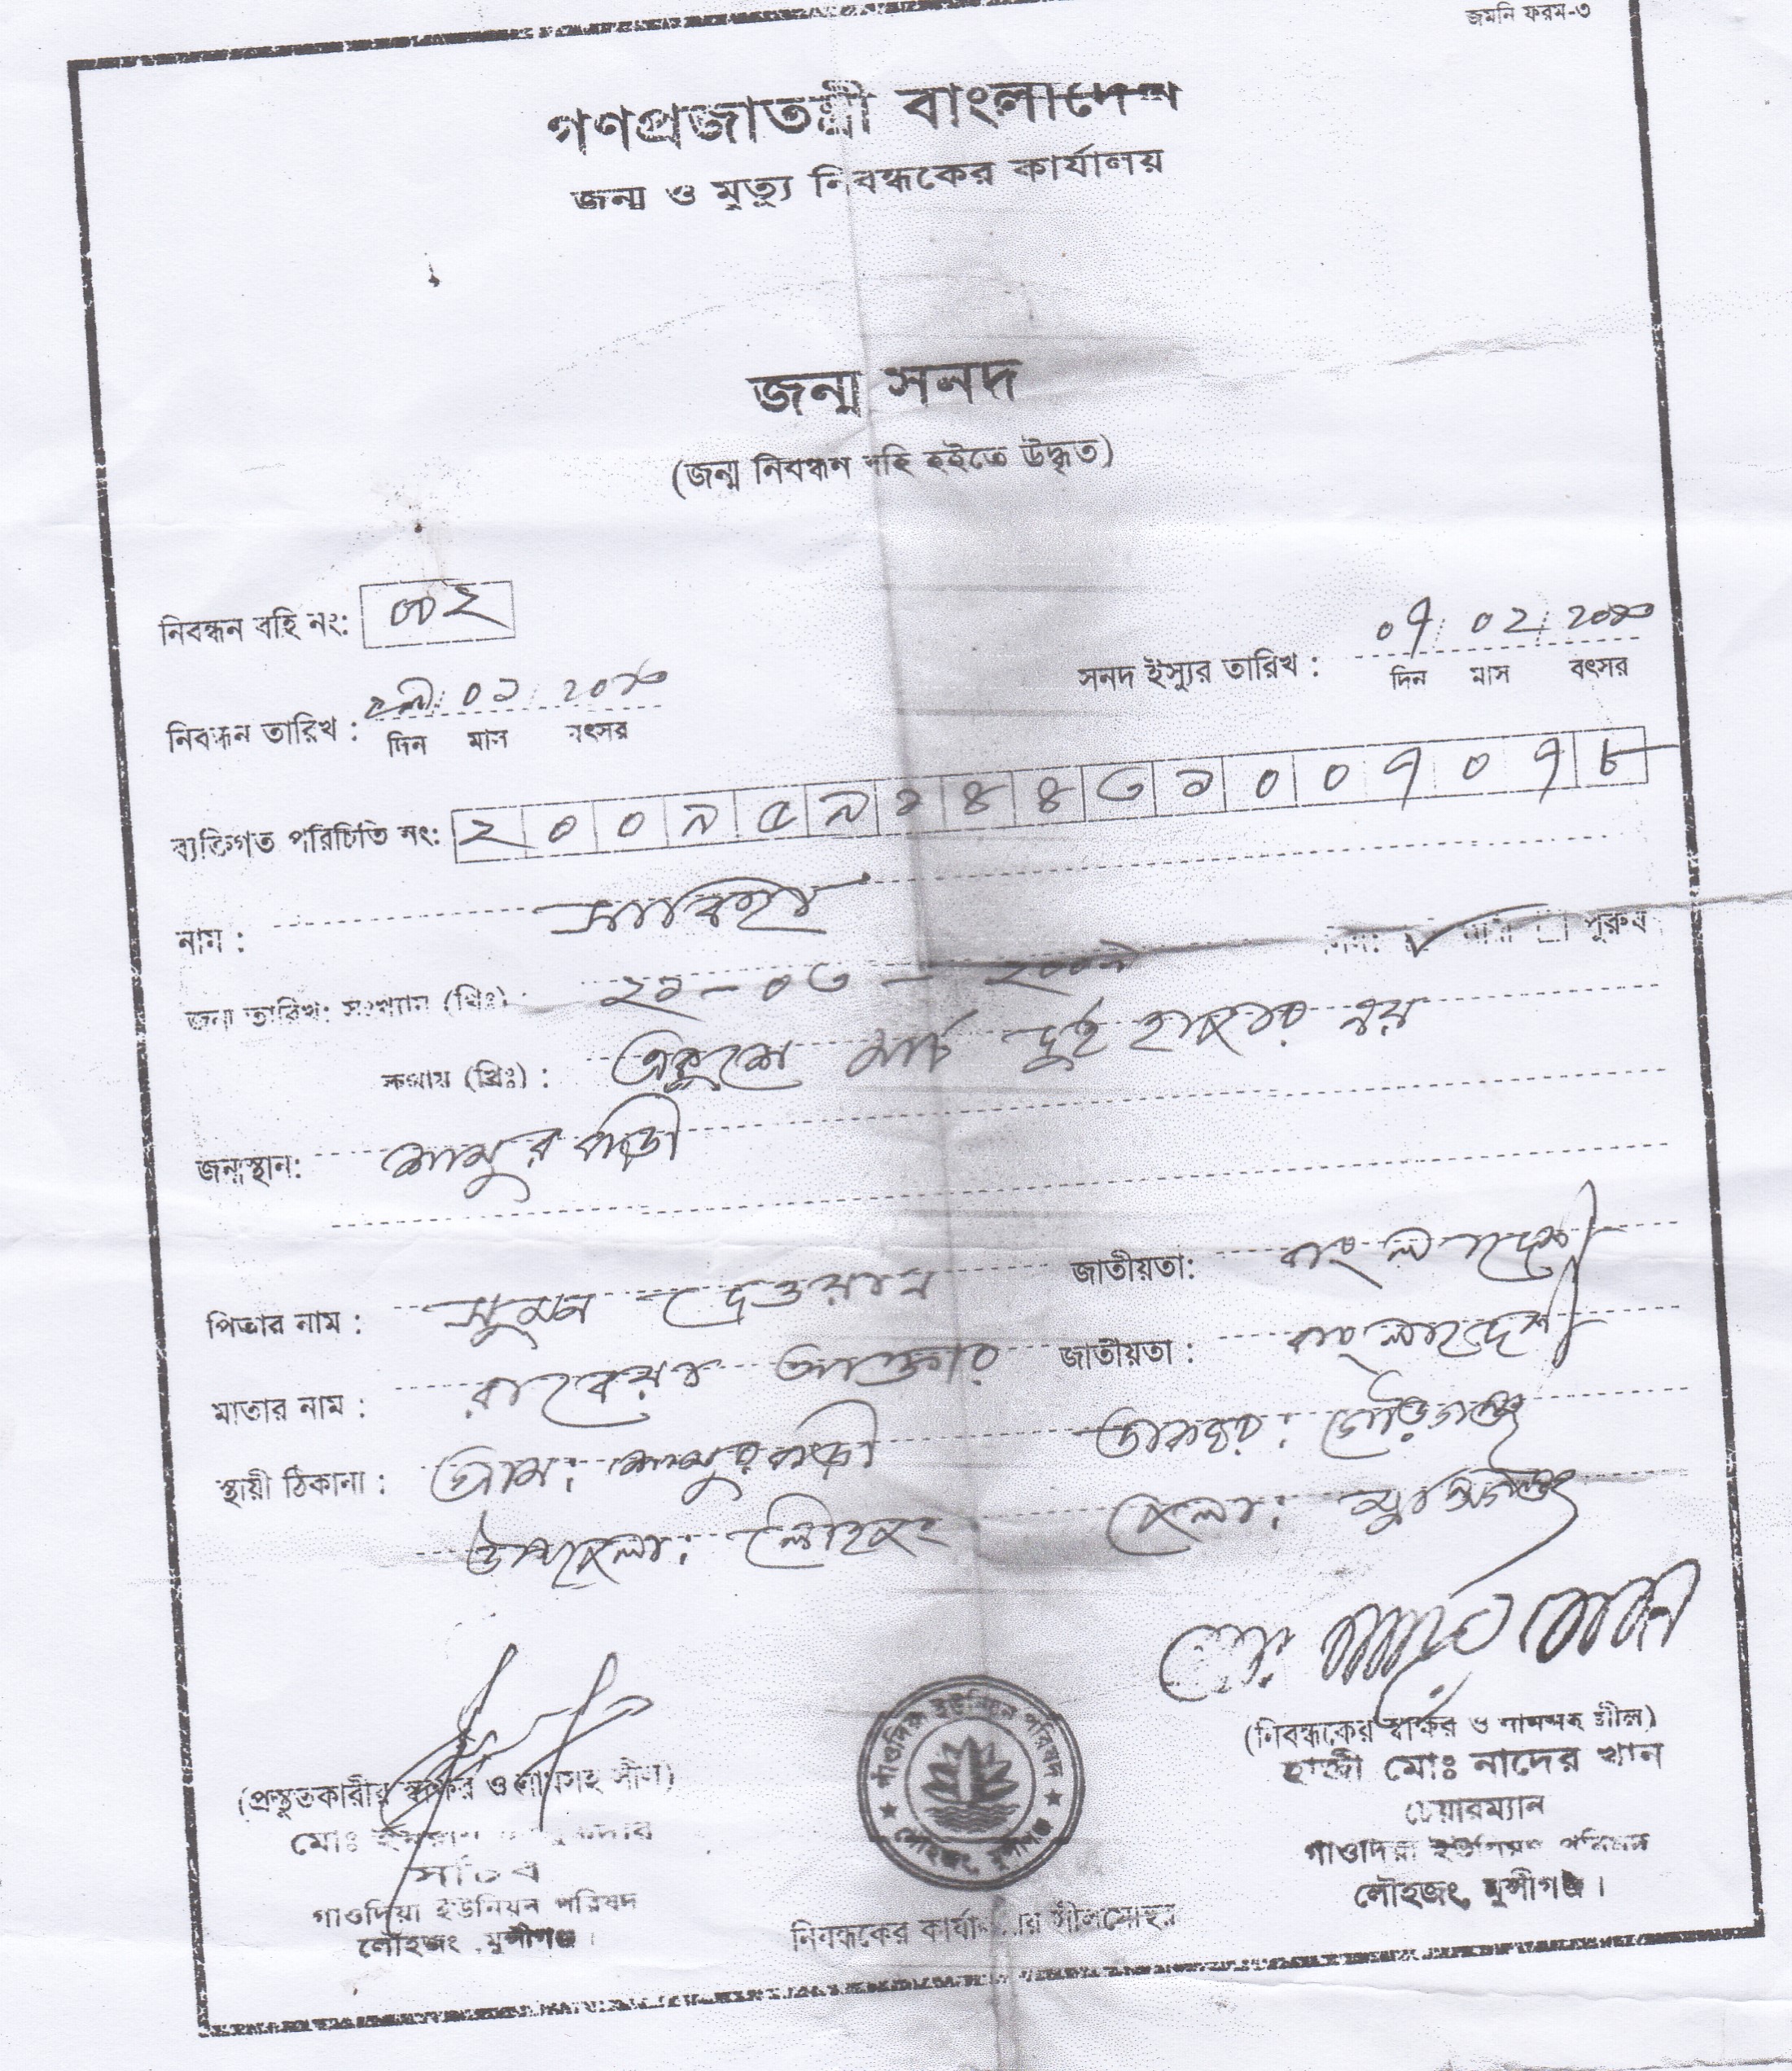 জমনি ফরম-৩
গণপ্রজাতন্ত্রী বাংলাদেশ
জন্ম ও মৃত্যু নিবন্ধকের কার্যালয়
জন্ম সনদ
(জন্ম নিবন্ধন বহি হইতে উদ্ধৃত)
নিবন্ধন বহি নং: ০০২
সনদ ইস্যুর তারিখ : ০৭ ০২ ২০১০
দিন মাস বৎসর
নিবন্ধন তারিখ : ০১ ২০১০
দিন মাস বৎসর
ব্যক্তিগত পরিচিতি নং: ২ ০ ০ ৯ ৫ ৯ ১ ৪ ৪ ৩ ১ ০ ০ ৭ ০ ৭ ৮
নাম : সাবিহা
লিঙ্গ: নারী পুরুষ
জন্ম তারিখ: সংখ্যায় (খ্রিঃ) : ২১-০৩-২০০৯
কথায় (খ্রিঃ) : একুশে মার্চ দুই হাজার নয়
জন্মস্থান: শামুর বাড়ী
পিতার নাম : সুমন দেওয়ান জাতীয়তা: বাংলাদেশী
মাতার নাম : রাবেয়া আক্তার জাতীয়তা : বাংলাদেশী
স্থায়ী ঠিকানা : গ্রাম: শামুরবাড়ী ডাকঘর: গৌড়গঞ্জ
উপজেলা: লৌহজং জেলা: মুন্সিগঞ্জ
(নিবন্ধকের স্বাক্ষর ও নামসহ সীল)
হাজী মোঃ নাদের খান
চেয়ারম্যান
গাওদিয়া ইউনিয়ন পরিষদ
লৌহজং, মুন্সীগঞ্জ।
(প্রস্তুতকারীর স্বাক্ষর ও নামসহ সীল)
মোঃ
সচিব
গাওদিয়া ইউনিয়ন পরিষদ
লৌহজং, মুন্সীগঞ্জ।
গাঁওদিয়া ইউনিয়ন পরিষদ
লৌহজং, মুন্সীগঞ্জ
নিবন্ধকের কার্যালয়ের সীলমোহর